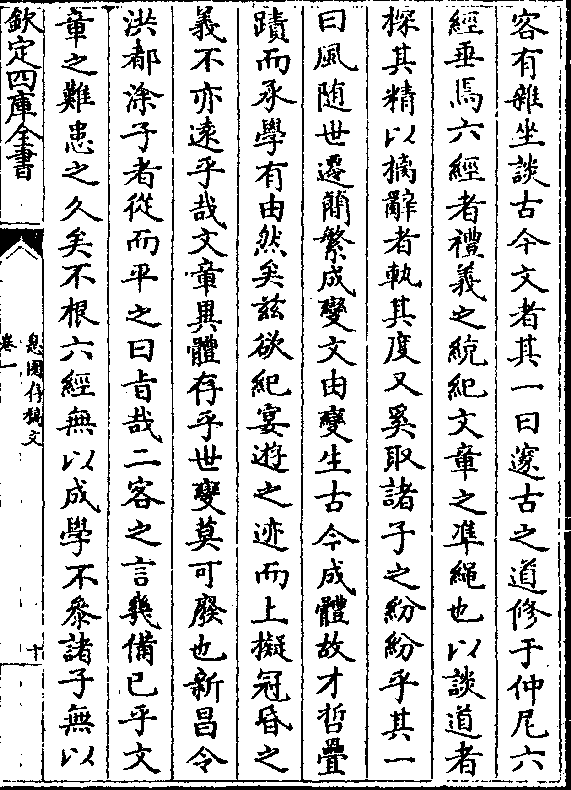 客有雜坐談古今文者其一曰邃古之道修于仲尼六
經垂焉六經者禮義之統紀文章之準繩也以談道者
探其精以摛辭者執其度又奚取諸子之紛紛乎其一
曰風随世遷蕑繁成變文由變生古今成體故才哲疊
蹟而承學有由然矣兹欲紀宴遊之迹而上擬冠昏之
義不亦遠乎哉文章異體存乎世變莫可廢也新昌令
洪都涂子者從而平之曰㫖哉二客之言幾備已乎文
章之難患之久矣不根六經無以成學不叅諸子無以
欽定四庫全書
息園存稿文
卷一
十